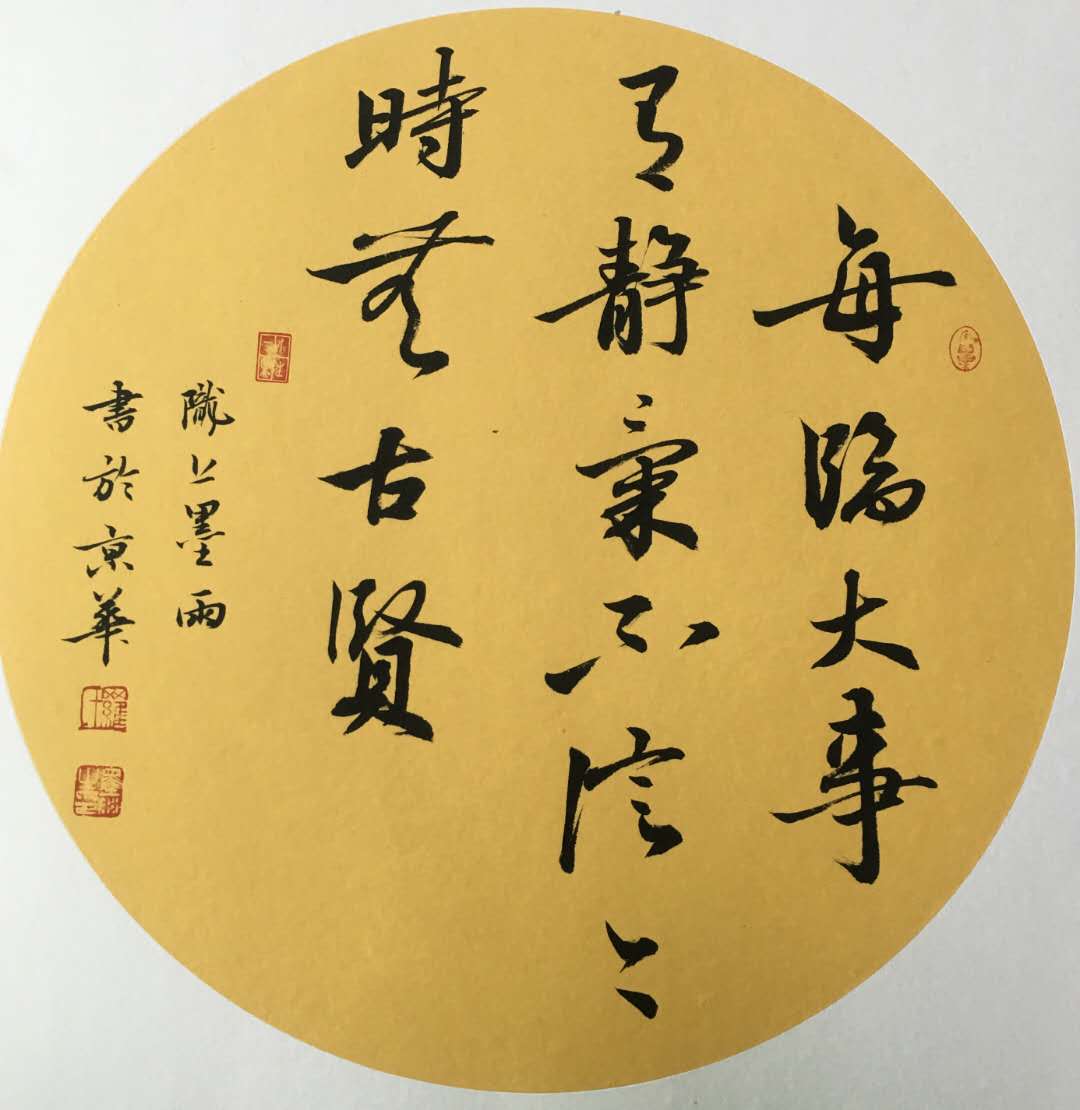 每臨大事
有靜氣不信今
時無古賢
隴上墨雨
書於京華